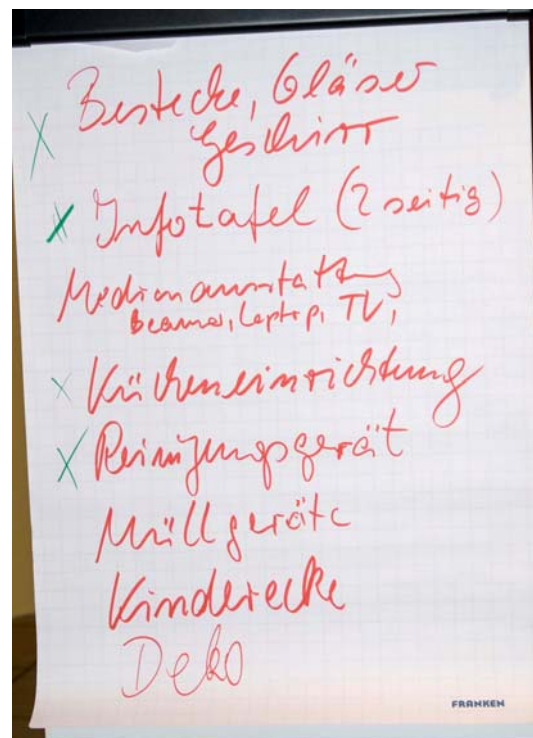 Bestecke, Gläser
Geschirr
Infotafel (2 seitig)
Medienausstattung
Beamer, Laptop, TV,
Kücheneinrichtung
Reinigungsgerät
Müllgeräte
Kinderecke
Deko
FRANKEN